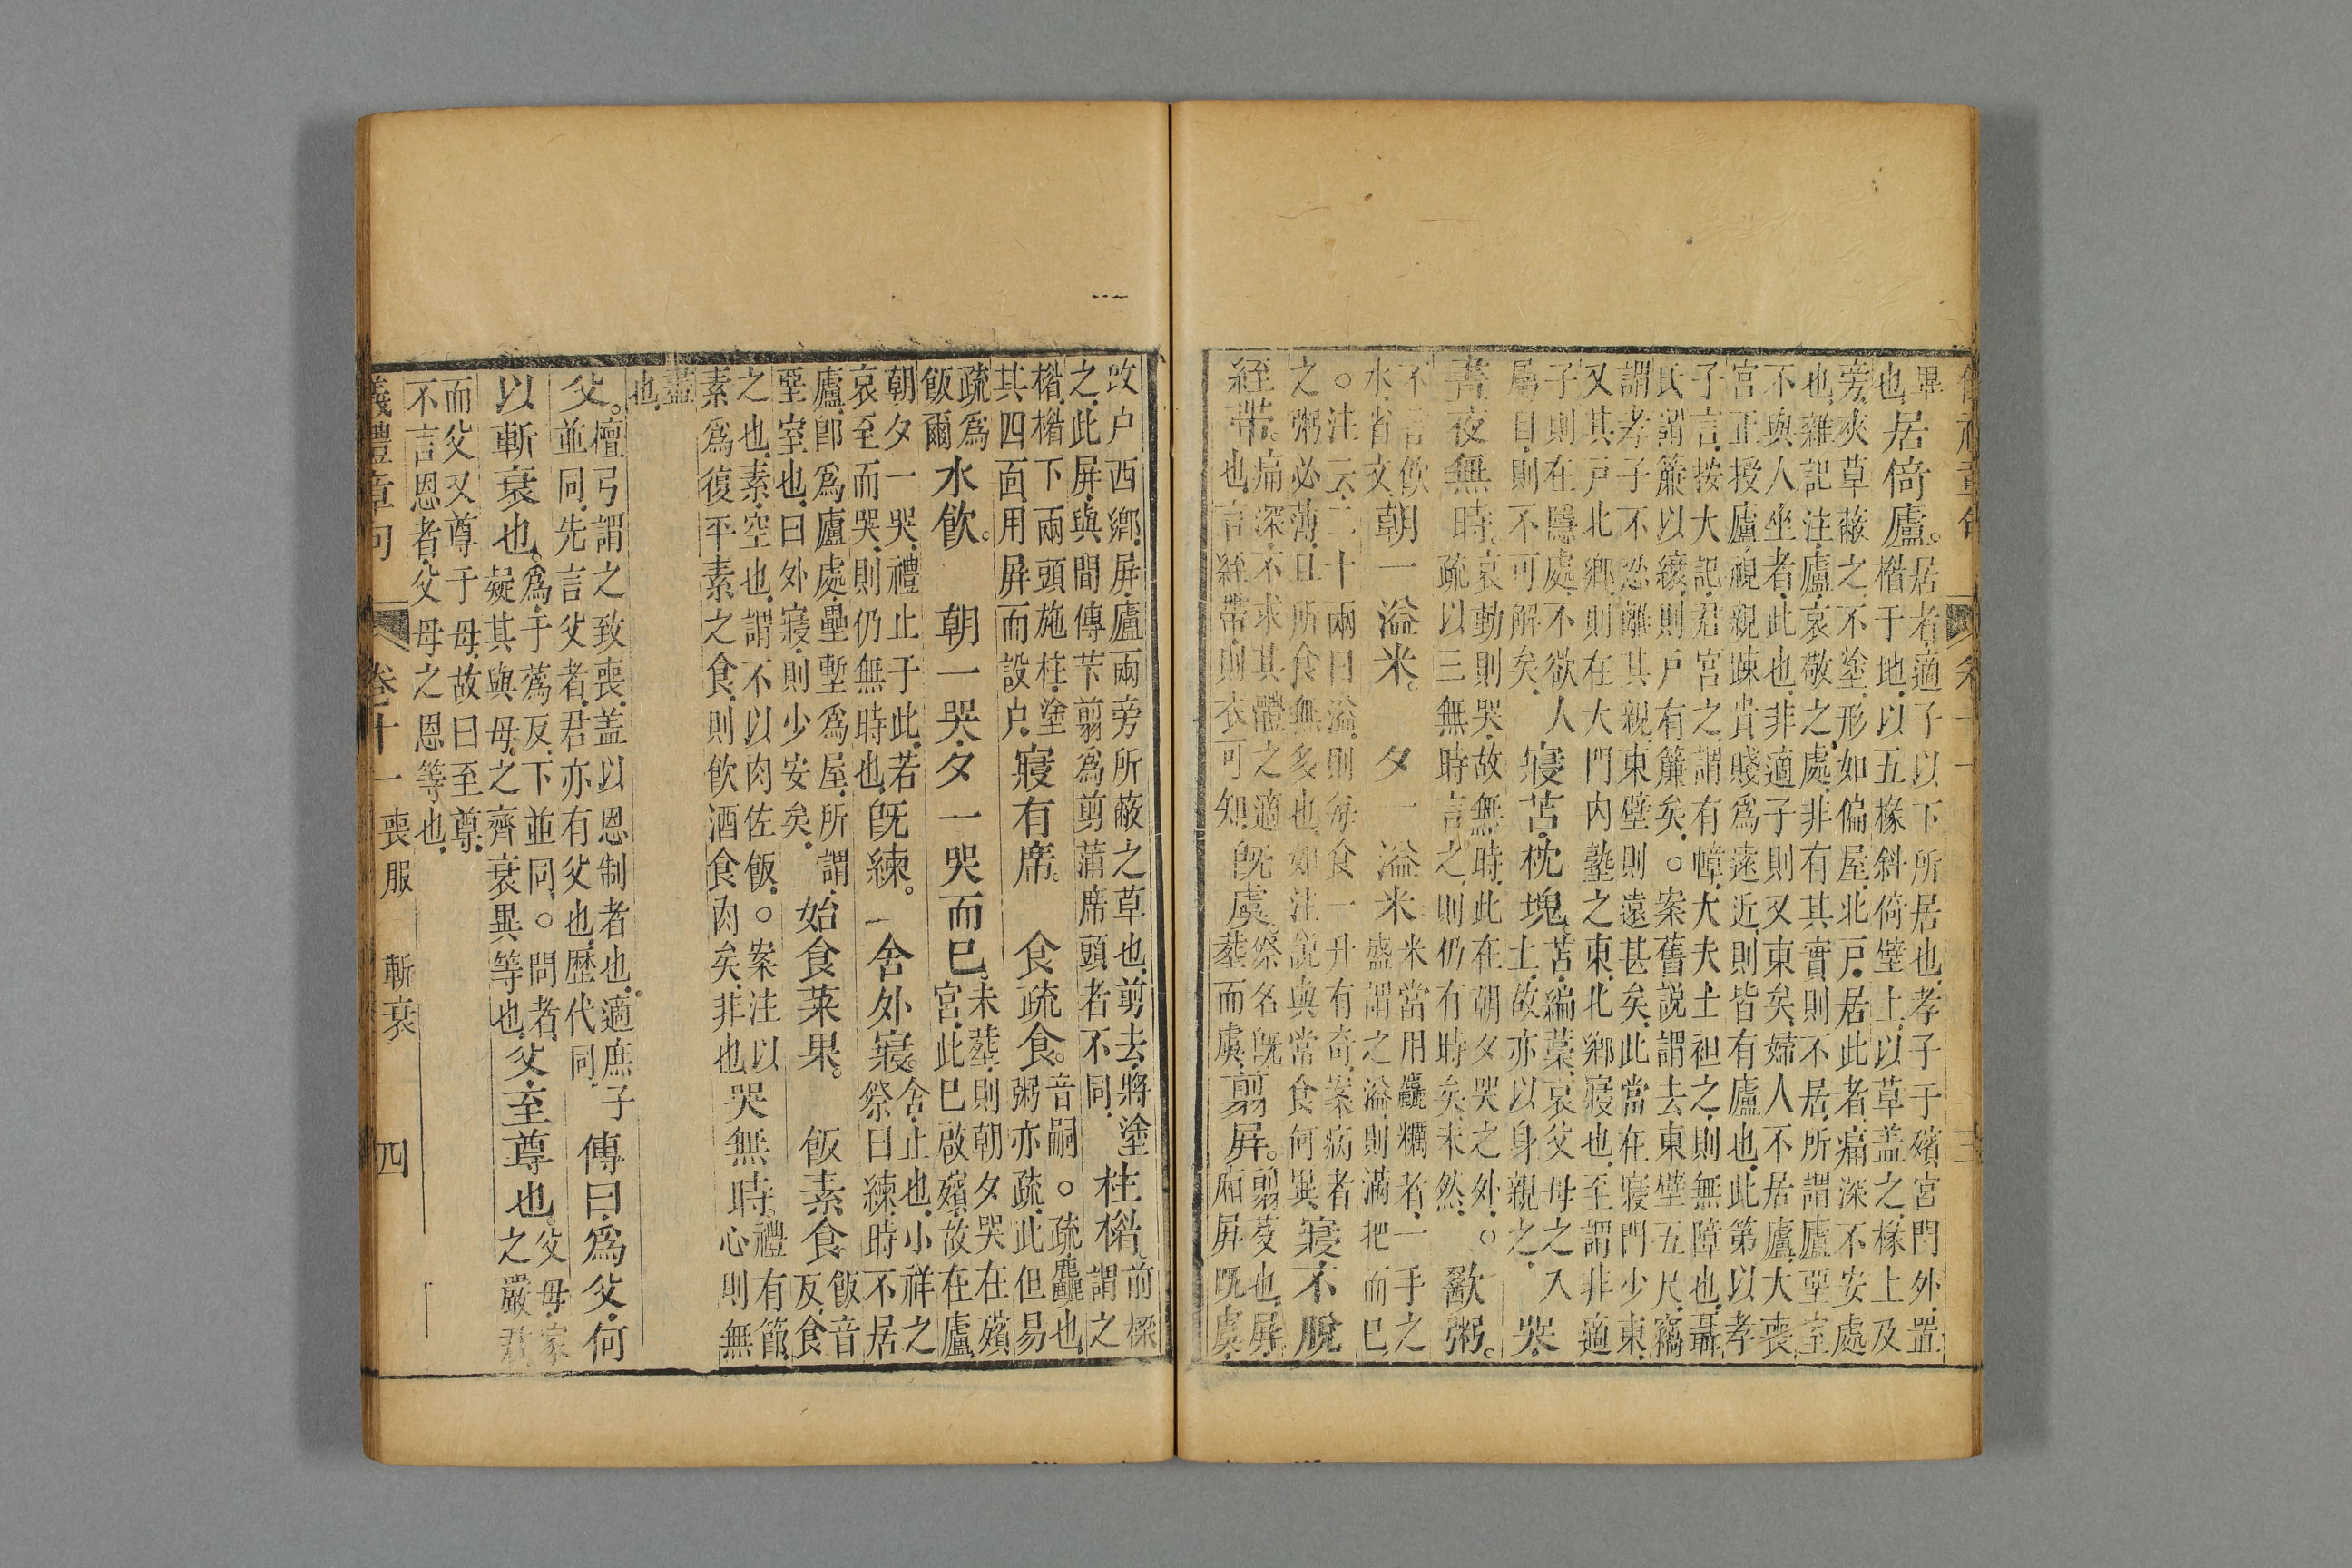 儀禮章句 卷十一 三
畢
也
居倚廬。
居者.適子以下所居也.孝子于殯宮門外.置
楷于地.以五椽斜倚壁上.以草盖之.椽上及
旁.夾草蔽之.不塗.形如偏屋.北戸.居此者.痛深不安處
也.雜記注.廬.哀敬之處.非有其實則不居.所謂廬堊室
不與人坐者.此也.非適子則又東矣.婦人不居廬.大喪
宮正授廬.視親踈貴賤爲遠近.則皆有廬也.此第以孝
子言.按大記.君宮之.謂有幛.大夫士袒之.則無障也.聶
氏謂簾以縗.則戸有簾矣.○案舊説謂去東壁五尺.竊
謂孝子不忍離其親.東壁則遠甚矣.此當在寢門少東.
又其戸北郷.則在大門内塾之東.北郷寢也.至謂非適
子則在隱處.不欲人
屬目.則不可解矣.
寢苫枕塊
苫.編藁.哀父母之入
土.故亦以身親之.
哭
晝夜無時。
哀動則哭.故無時.此在朝夕哭之外.○
疏以三無時言之.則仍有時矣.未然.
歠粥。
不言飲
水.省文.
朝一溢米。夕一溢米
米當用麤糲者.一手之
盛謂之溢.則滿把而已
○注云.二十兩曰溢.則每食一升有奇.案病者
之粥必薄.且所食無多也.如注説與常食何異
寢不脫
絰帶。
痛深.不求其體之適
也.言絰帶.則衣可知
既虞
祭名.既
葬而虞.
剪屏。
翦芟也.屏
厢屏.既虞.
攺户西郷.屏.廬兩旁所蔽之草也.剪去.將塗
之.此屏.與間傳苄翦.爲剪蒲席頭者不同.
柱楷。
前梁
謂之
楷.楷下兩頭施柱.塗
其四面.用屏而設户.
寢有席。食疏食。
音嗣.○疏.麤也
粥亦疏.此但易
疏爲
飯爾
水飲。朝一哭.夕一哭而已
未葬.則朝夕哭在殯
宮.此已啟殯.故在廬.
朝夕一哭.禮止于此.若
哀至而哭.則仍無時也.
旣練。舍外寢。
舍.止也.小祥之
祭曰練.時不居
廬.卽爲廬處.壘塹爲屋.所謂
堊室也.曰外寢.則少安矣.
始食菜果。飯素食。
飯音
反.食
之也.素.空也.謂不以肉佐飯.○案注以
素爲復平素之食.則飲酒食肉矣.非也
哭無時。
禮有節.
心則無
盡
也.
父。
檀弓謂之致喪.盖以恩制者也.適庶子
並同.先言父者.君亦有父也.歷代同.
傳曰.爲父.何
以斬衰也.
爲.于爲反.下並同.○問者.
疑其與母.之齊衰異等也.
父.至尊也.
父母.家
之嚴君
而父又尊于母.故曰至尊.
不言恩者.父母之恩等也.
儀禮章句 卷十一 喪服 斬衰 四